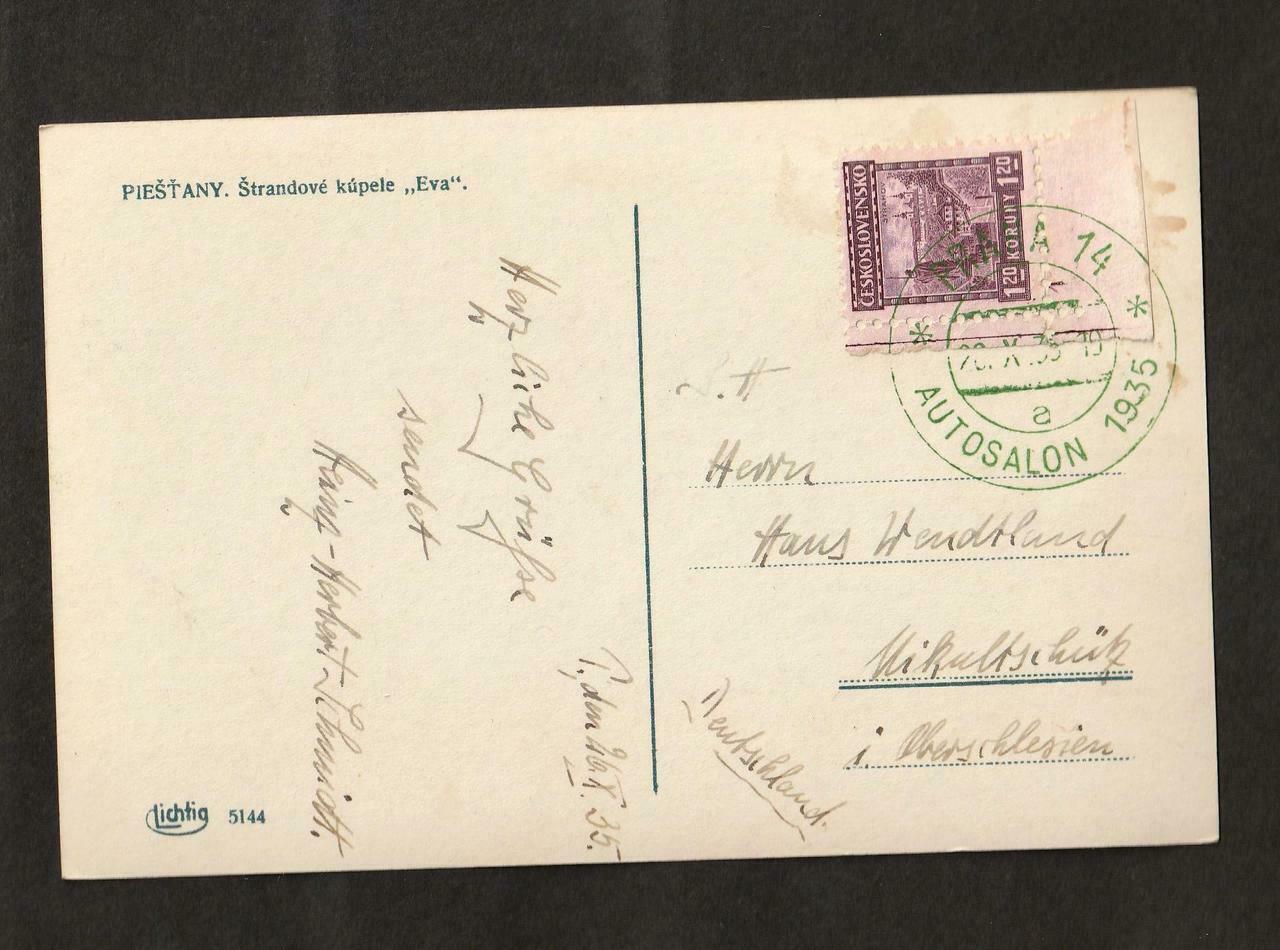 PIEŠŤANY. Štrandové kúpele „Eva“.
Herzliche Grüße
sendet
Heinz-Herbert Schmidt.
P., den 26.X.35.
lichtig 5144
ČESKOSLOVENSKO
1 20 KORUNY 1 20
PRAHA 14
26. X. 35-19
a
* AUTOSALON 1935 *
Herrn
Hans Wendtland
Mikultschütz
i. Oberschlesien
Deutschland.